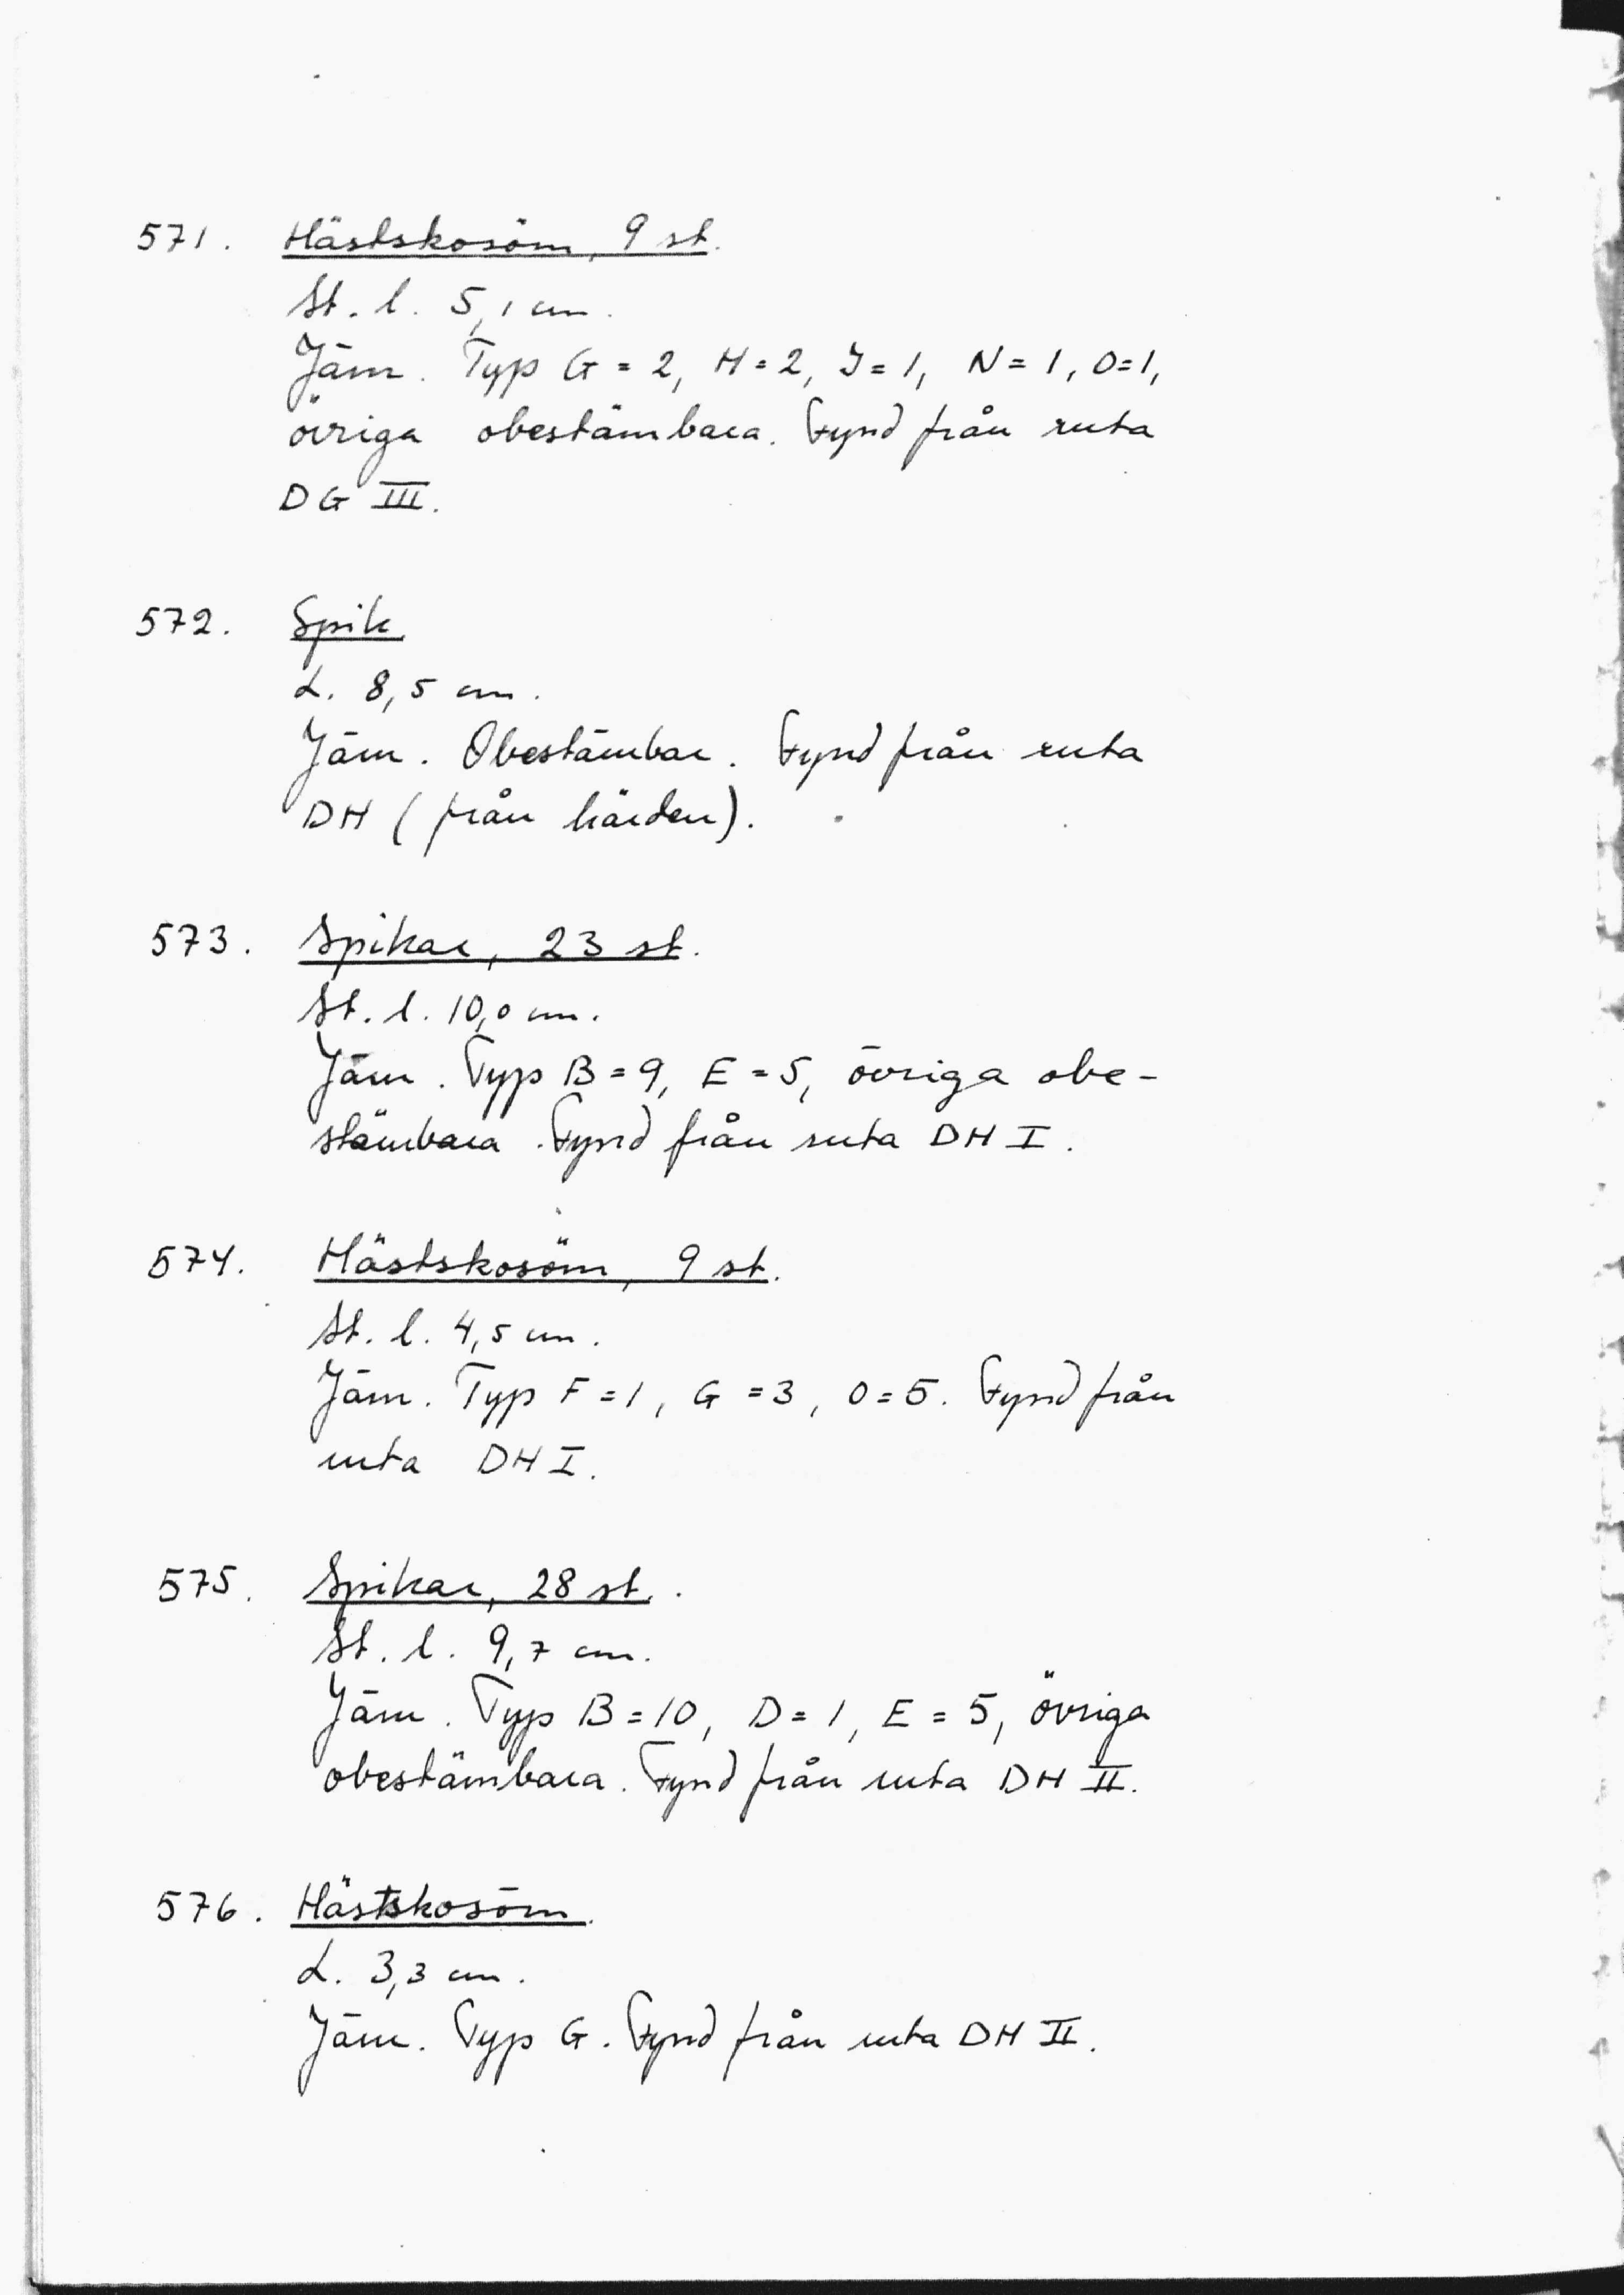 571. Hästskosöm, 9 st.
St. l. 5,1 cm.
Järn. Typ G = 2, H = 2, J = 1, N = 1, O = 1,
övriga obestämbara. Fynd från ruta
DG III.
572. Spik.
L. 8,5 cm.
Järn. Obestämbar. Fynd från ruta
DH (från härden).
573. Spikar, 23 st.
St. l. 10,0 cm.
Järn. Typ B = 9, E = 5, övriga obe-
stämbara. Fynd från ruta DH I.
574. Hästskosöm, 9 st.
St. l. 4,5 cm.
Järn. Typ F = 1, G = 3, O = 5. Fynd från
ruta DH I.
575. Spikar, 28 st.
St. l. 9,7 cm.
Järn. Typ B = 10, D = 1, E = 5, övriga
obestämbara. Fynd från ruta DH II.
576. Hästskosöm.
L. 3,3 cm.
Järn. Typ G. Fynd från ruta DH II.